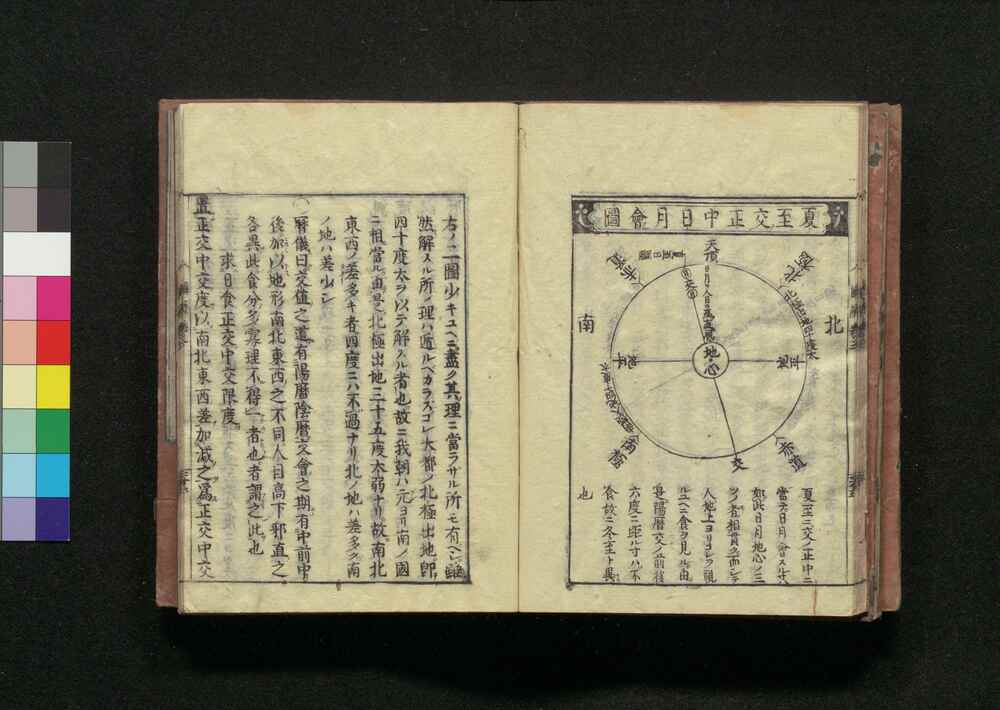 夏至交正中日月會圖
北
南
天頂
北極
赤道
夏至日躔
地平
地心
地平
南極
赤道
交
夏至ニ交ノ正中ニ
當テ日月會スル寸ハ
如此日月地心ノ三
ツノ者相貫ス而シテ
人地上ヨリコレヲ視
ルユヘニ食ヲ見ル由
是陽曆交ノ前後
六度ニ距ル寸ハ不
食故ニ冬至ト異
也
右ノ二圖少キユヘニ盡ク其理ニ當ラサル所モ有ヘシ雖
然解スル所ノ理ハ遁ルヘカラスコレ大都ノ北極出地卽
四十度太ヲ以テ解スル者也故ニ我朝ハ元ヨリ南ノ國
ニ相當ル由是北極出地三十五度太弱ナリ故ニ南北
東西ノ差多キ者四度ニハ不過ナリ北ノ地ハ差多ク南
ノ地ハ差少シ
曆儀曰交値之道有陽曆陰曆交會之期有中前中
後加以地形南北東西之不同人目高下邪直之
各異此食分多寡理不得一者也者謂之此也
求日食正交中交限度
置正交中交度以南北東西差加減之爲正交中交